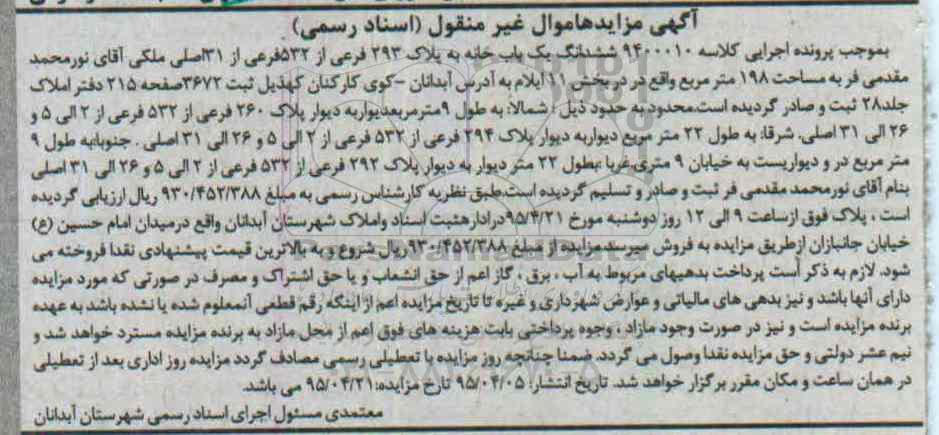 آگهی مزایدهاموال غیر منقول (اسناد رسمی)
بموجب پرونده اجرایی کلاسه ۹۴۰۰۰۱۰ ششدانگ یک باب خانه به پلاک ۲۹۳ فرعی از ۵۳۲فرعی از ۳۱اصلی ملکی آقای نورمحمد
مقدمی فر به مساحت ۱۹۸ متر مربع واقع در در بخش ۱۱ ایلام به آدرس آبدانان -کوی کارکنان کهدیل ثبت ۳۶۷۲صفحه ۲۱۵ دفتر املاک
جلد۲۸ ثبت و صادر گردیده است.محدود به حدود ذیل : شمالا: به طول ۹مترمربعدیواربه دیوار پلاک ۲۶۰ فرعی از ۵۳۲ فرعی از ۲ الی ۵ و
۲۶ الی ۳۱ اصلی. شرقا: به طول ۲۲ متر مربع دیواربه دیوار پلاک ۲۹۴ فرعی از ۵۳۲ فرعی از ۲ الی ۵ و ۲۶ الی ۳۱ اصلی . جنوبا:به طول ۹
متر مربع در و دیواریست به خیابان ۹ متری.غربا :بطول ۲۲ متر دیوار به دیوار پلاک ۲۹۲ فرعی از ۵۳۲ فرعی از ۲ الی ۵ و ۲۶ الی ۳۱ اصلی
بنام آقای نورمحمد مقدمی فر ثبت و صادر و تسلیم گردیده است.طبق نظریه کارشناس رسمی به مبلغ ۹۳۰/۴۵۲/۳۸۸ ریال ارزیابی گردیده
است ، پلاک فوق ازساعت ۹ الی ۱۲ روز دوشنبه مورخ ۹۵/۴/۲۱درادارهثبت اسناد واملاک شهرستان آبدانان واقع درمیدان امام حسین (ع)
خیابان جانبازان ازطریق مزایده به فروش میرسد.مزایده از مبلغ ۹۳۰/۴۵۲/۳۸۸ریال شروع و به بالاترین قیمت پیشنهادی نقدا فروخته می
شود. لازم به ذکر است پرداخت بدهیهای مربوط به آب ، برق ، گاز اعم از حق انشعاب و یا حق اشتراک و مصرف در صورتی که مورد مزایده
دارای آنها باشد و نیز بدهی های مالیاتی و عوارض شهرداری و غیره تا تاریخ مزایده اعم از اینکه رقم قطعی آنمعلوم شده یا نشده باشد به عهده
برنده مزایده است و نیز در صورت وجود مازاد ، وجوه پرداختی بابت هزینه های فوق اعم از محل مازاد به برنده مزایده مسترد خواهد شد و
نیم عشر دولتی و حق مزایده نقدا وصول می گردد. ضمنا چنانچه روز مزایده با تعطیلی رسمی مصادف گردد مزایده روز اداری بعد از تعطیلی
در همان ساعت و مکان مقرر برگزار خواهد شد. تاریخ انتشار: ۹۵/۰۴/۰۵ تارخ مزایده:۹۵/۰۴/۲۱ می باشد.
معتمدی مسئول اجرای اسناد رسمی شهرستان آبدانان